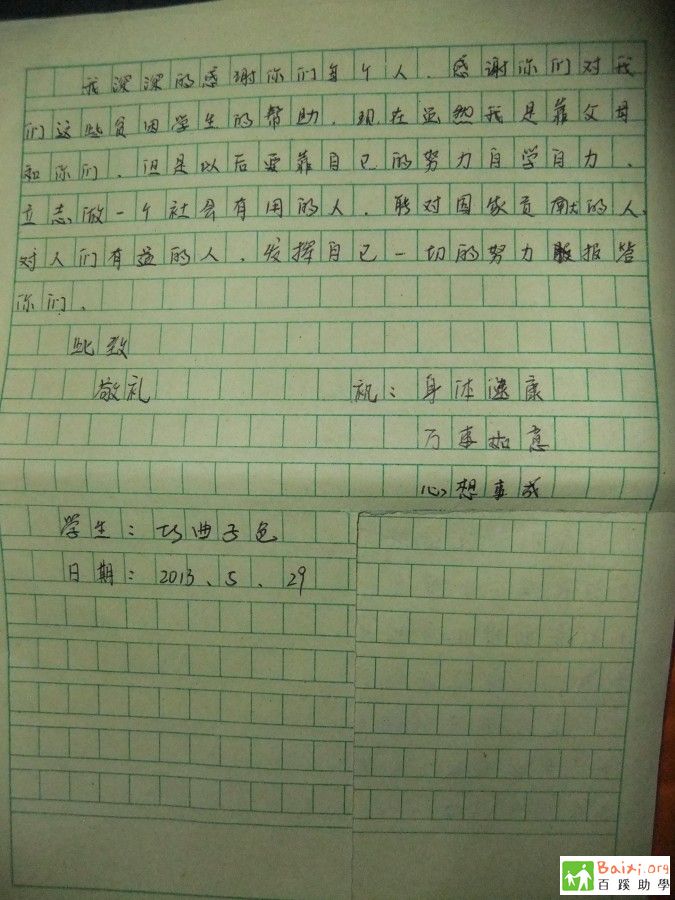 我深深的感谢你们每个人.感谢你们对我
们这些贫困学生的帮助.现在虽然我是靠父母
和你们.但是以后要靠自己的努力自学自力.
立志做一个社会有用的人.对国家贡献的人.
对人们有益的人.发挥自己一切的努力报答
你们.
此致
敬礼 祝:身体健康
万事如意
心想事成
学生:巧曲子色
日期:2013.5.29
Baixi.org
百蹊助學